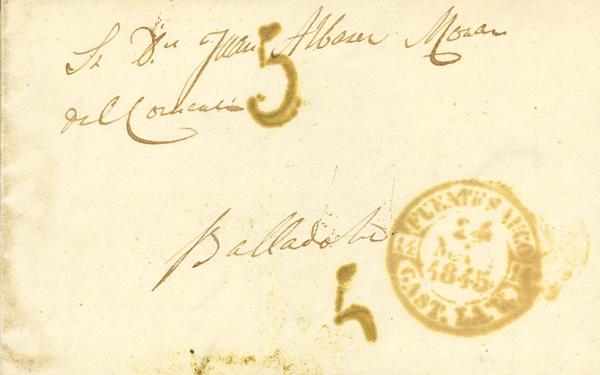 Sr Dn Juan Albarer Moran
del Comercio
5
Balladolid
5
FUENTESAUCO
24
MAY
1845
CAST. LA V.